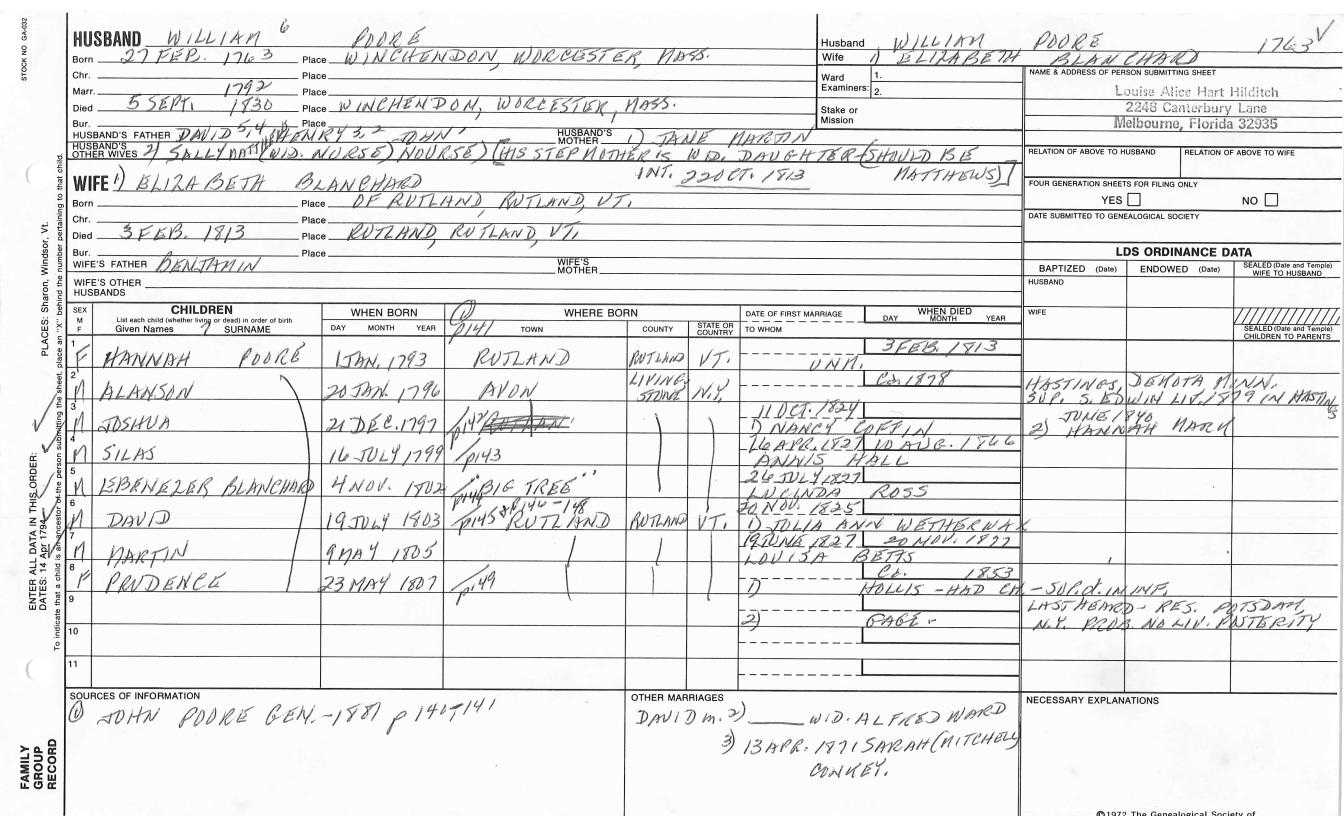 STOCK NO GA-032
HUSBAND WILLIAM 6 POORE
Born 27 FEB. 1763 Place WINCHENDON, WORCESTER, MASS.
Chr. Place
Marr. 1792 Place
Died 5 SEPT. 1830 Place WINCHENDON, WORCESTER, MASS.
Bur. Place
HUSBAND'S FATHER DAVID 5,4 HENRY 3,2 JOHN 1 HUSBAND'S MOTHER 1) JANE MARTIN
HUSBAND'S OTHER WIVES 2) SALLY (WID. NURSE) NOURSE) [HIS STEPMOTHER'S WID. DAUGHTER (SHOULD BE MATTHEWS)]
INT. 22 OCT. 1813
Husband WILLIAM POORE 1763 V
Wife 1) ELIZABETH BLANCHARD
Ward Examiners: 1.
2.
Stake or Mission
NAME & ADDRESS OF PERSON SUBMITTING SHEET
Louise Alice Hart Hilditch
2248 Canterbury Lane
Melbourne, Florida 32935
RELATION OF ABOVE TO HUSBAND RELATION OF ABOVE TO WIFE
FOUR GENERATION SHEETS FOR FILING ONLY
YES NO
DATE SUBMITTED TO GENEALOGICAL SOCIETY
WIFE 1) ELIZABETH BLANCHARD
Born Place OF RUTLAND, RUTLAND, VT.
Chr. Place
Died 3 FEB. 1813 Place RUTLAND, RUTLAND, VT.
Bur. Place
WIFE'S FATHER BENJAMIN WIFE'S MOTHER
WIFE'S OTHER HUSBANDS
LDS ORDINANCE DATA
BAPTIZED (Date) ENDOWED (Date) SEALED (Date and Temple) WIFE TO HUSBAND
HUSBAND
WIFE
SEALED (Date and Temple) CHILDREN TO PARENTS
SEX M F CHILDREN WHEN BORN WHERE BORN DATE OF FIRST MARRIAGE WHEN DIED
List each child (whether living or dead) in order of birth
Given Names 7 SURNAME DAY MONTH YEAR p141 TOWN COUNTY STATE OR COUNTRY TO WHOM DAY MONTH YEAR
1 F HANNAH POORE 1 JAN. 1793 RUTLAND RUTLAND VT. UNM. 3 FEB. 1813
2 M ALANSON 20 JAN. 1796 AVON LIVINGSTONE N.Y. Ca. 1878 HASTINGS, DEKOTA MINN.
SUP. S. EDWIN LIV. 1879 IN HASTINGS
3 M JOSHUA 21 DEC. 1797 p142 11 OCT. 1824
1) NANCY COFFIN
JUNE 1840
2) HANNAH MARK
4 M SILAS 16 JULY 1799 p143 26 APR. 1827 10 AUG. 1866
ANNIS HALL
5 M EBENEZER BLANCHARD 4 NOV. 1802 p144 "BIG TREE" 26 JULY 1827
LUCINDA ROSS
6 M DAVID 19 JULY 1803 p145 & p146-148 RUTLAND RUTLAND VT. 20 NOV. 1825
1) JULIA ANN WETHERWAX
7 M MARTIN 9 MAY 1805 19 JUNE 1827 20 NOV. 1877
LOUISA BETTS
8 F PRUDENCE 23 MAY 1807 p149 Ca. 1853
1) HOLLIS - HAD CH. - SUP. d. IN INF.
9 LAST HEARD - RES. POTSDAM,
2) GAGE - N.Y. PROB NO LIV. POSTERITY
10
11
SOURCES OF INFORMATION
① JOHN POORE GEN. - 1881 p 140 & 141
OTHER MARRIAGES
DAVID m. 2) ____ WID. ALFRED WARD
3) 13 APR. 1871 SARAH (MITCHELL)
CONKEY.
NECESSARY EXPLANATIONS
©1972 The Genealogical Society of
FAMILY GROUP RECORD
ENTER ALL DATA IN THIS ORDER:
DATES: 14 Apr 1794
PLACES: Sharon, Windsor, Vt.
To indicate that a child is an ancestor of the person submitting the sheet, place an "X" behind the number pertaining to that child.